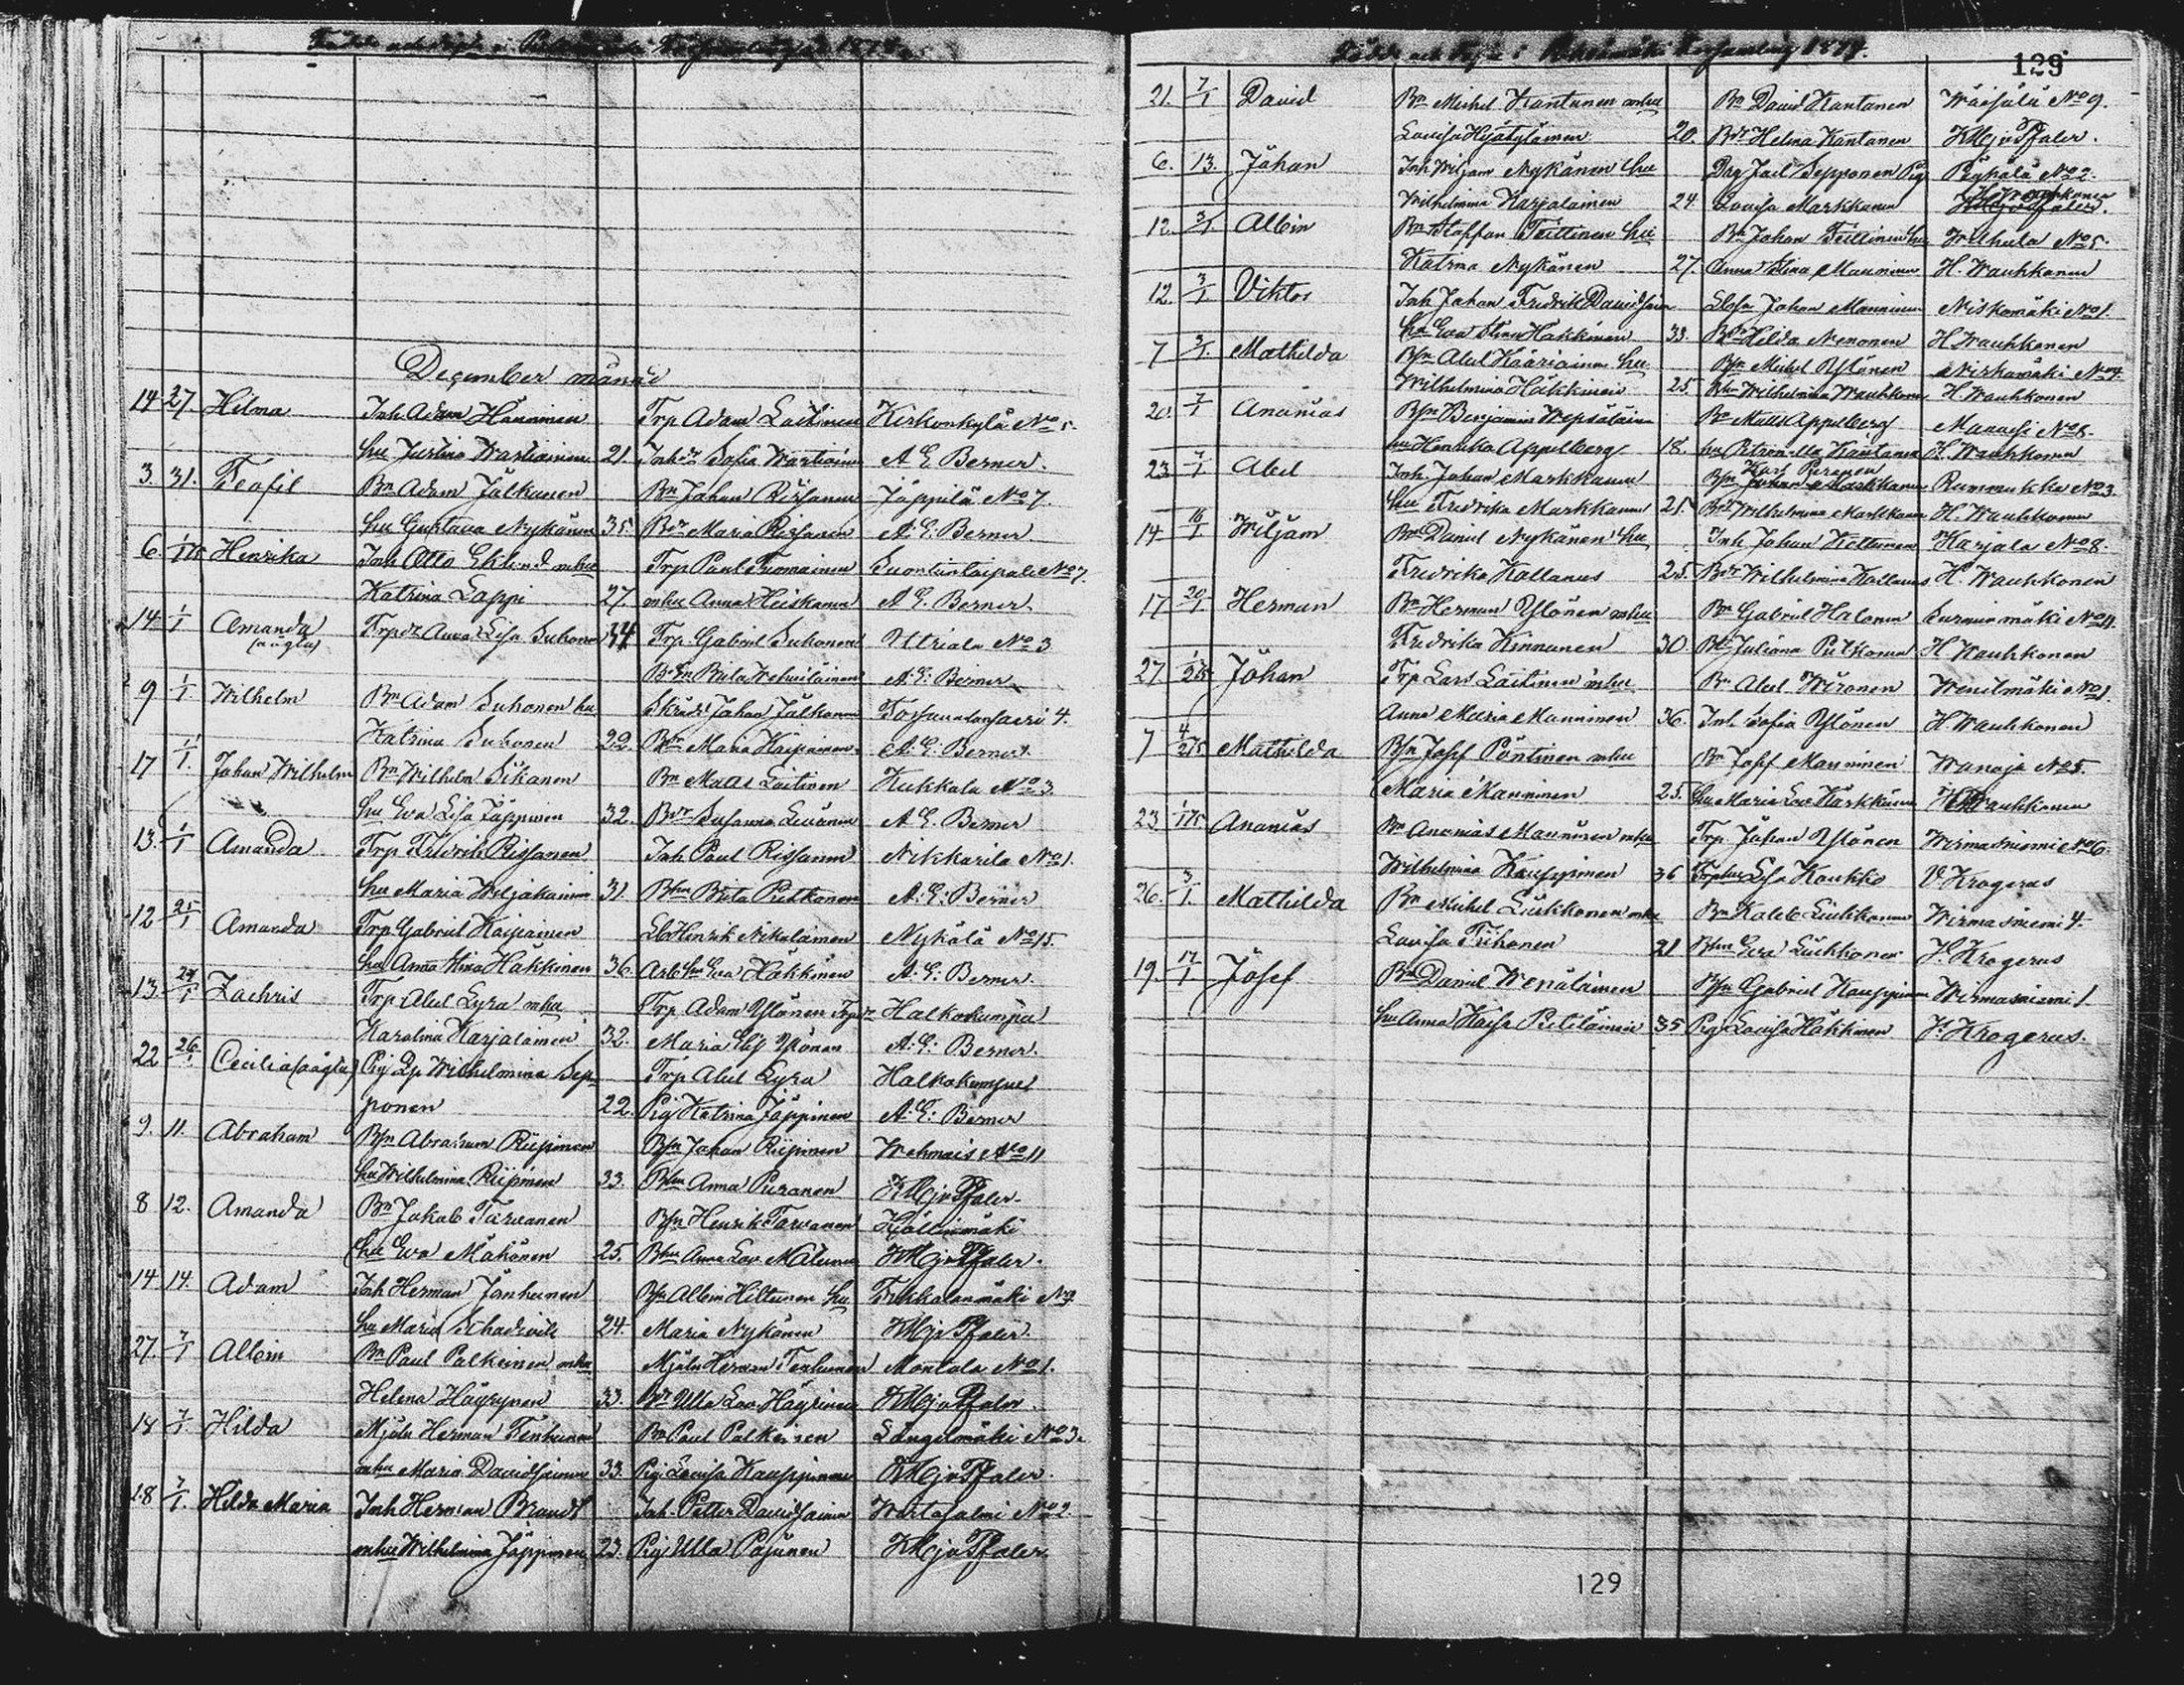 Födde och döpte i Församling år 187
December månad
14 27. Hilma Inh Adam Hänninen Trp Adam Laitinen Kirkonkylä No 5.
hu Justina Wartiainen 21. Inhdr Sofia Wartiain A E Berner.
3. 31. Teofil Bn Adam Jalkanen Bn Johan Rissanen Jäppilä No 7.
hu Gustava Nykänen 35. Bdr Maria Rissanen A. E. Berner
6. Henrika Inh Otto Eklund mhu Trp Paul Tuomainen Suontuntaipale No 7.
Katrina Lappi 27. mhu Anna Heiskanen A E. Berner.
14 1/1 Amanda Trpdr Anna Lisa Suhonen 34 Trp Gabriel Suhonen Utriala No 3
(oägta)
A. E. Berner
9 1/1 Wilhelm Bn Adam Suhonen hu Skrädd Johan Jalkanen 4.
Katrina Suhonen 22. Bdr Maria A. E. Berner.
17 1/1. Johan Wilhelm Bn Wilhelm Sikanen Bn Matts Laitinen Kukkala No 3.
hu Eva Lisa Jäppinen 32. Bdr Susanna A E. Berner
13. 1/1 Amanda Trp Fredrik Rissanen Inh Paul Rissanen Nikkarila No 1.
hu Maria Wiljakainen 31. Bhu Brita Pulkonen A. E. Berner
12 25/1 Amanda Trp Gabriel Kaipainen Henrik Nikulainen Nykälä No 15.
hu Anna Stina Häkkinen 36. Arb hu Eva Häkkinen A. E. Berner.
13. Zachris Trp Abel Lyra mhu Trp Adam Ylönen Trpdr Halkokumpu
Karolina Karjalainen 32. Maria Elis Ylönen A. E. Berner.
22 26/1 Cecilia (oägta) Pig Lp Wilhelmina Sep- Trp Abel Lyra Halkokumpu
ponen 22. Pig Katrina Jäppinen A. E. Berner
9. 11. Abraham Bsn Abraham Riipinen Bsn Johan Riipinen Wehmais No 11
hu Wilhelmina Riipinen 33. Bhu Anna Puranen KMjvPfaler.
8 12. Amanda Bn Jakob Tarvanen Bsn Henrik Tarvanen Källinmäki
hu Eva Mähönen 25. Bhu Anna Lov. KMjvPfaler.
14 14. Adam Inh Herman Janhunen Bsn Albin Hiltunen hu Tihkalanmäki No 9
hu Maria Schadevik 24. Maria Nykänen KMjvPfaler.
27. 7/1 Albin Bn Paul Palkeinen mhu Mjöln Herman Tenhunen Montola No 1.
Helena Häyrynen 33. Bdr Ulla Lov. Häyrinen KMjvPfaler.
18 7/1. Hilda Mjöln Herman Tenhunen Bn Paul Palkeinen Längelmäki No 3.
mhu Maria Davidsainen 33. Pig Lovisa Kauppinen KMjvPfaler.
28 7/1. Hilda Maria Inh Herman Brandt Inh Petter Davidsainen Wartasalmi No 2.
mhu Wilhelmina Jäppinen 23. Pig Ulla Pajunen KMjvPfaler.
Födde och döpte i Pieksämäki Församling 187
129
21. 7/1 David Bn Michel Kantanen mhu Bn David Kantanen Wäisälä No 9.
Lovisa Hyötyläinen 20. Bdr Helena Kantanen KMjvPfaler.
6. 13. Johan Inh Wiljam Nykänen hu Drg Joel Sepponen Pig Pyhälä No 2.
H. Wauhkonen
Wilhelmina Karjalainen 24. Lovisa Markkanen KMjvPfaler.
12. 3/1. Albin Bn Staffan Teittinen hu Bn Johan Teittinen hu Wilhula No 5.
Katrina Nykänen 27. Anna Stina Manninen H. Wauhkonen
12. 3/1. Viktor Inh Johan Fredrik Davidsain Johan Manninen Niskamäki No 1.
hu Eva Stina Häkkinen 33. Bdr Hilda Nenonen H Wauhkonen
7 3/1. Mathilda Bsn Abel Kääriäinen hu Bsn Michel Ylönen Niskamäki No 4.
Wilhelmina Häkkinen 25. Bhu Wilhelmina Wauhkonen H. Wauhkonen
20. 7/1 Ananias Bsn Benjamin Wepsäläinen Bn Matts Appelberg No 8.
hu Henrika Appelberg 18. hu Petronella Kantanen H. Wauhkonen
23 7/1 Abel Inh Johan Markkanen Bsn Johan Markkanen Rummukka No 3.
hu Fredrika Markkanen 21. Bdr Wilhelmina Markkanen H. Wauhkonen
14 16/1 Wiljam Bn Daniel Nykänen hu Inh Johan Kettunen Karjala No 8.
Fredrika Kallanus 25. Bdr Wilhelmina Kallanus H. Wauhkonen
17 20/1 Herman Bn Herman Ylönen mhu Bn Gabriel Halonen
Fredrika Kinnunen 30 Juliana Pulkonen H Wauhkonen
27 Johan Trp Lars Laitinen mhu Bn Abel Wironen Wenetmäki No 1.
Anna Maria Manninen 36. Inh Sofia Ylönen H Wauhkonen
7 Mathilda Bsn Josef Pöntinen mhu Bn Josef Manninen Wanaja No 5.
Maria Manninen 25. hu Maria Lov. H Wauhkonen
23 Ananias Bn Ananias Manninen mhu Trp Johan Ylönen Wirmasniemi No 6.
Wilhelmina Kauppinen 36 Trphu Lisa Koukko V. Krogerus
26. 3/1. Mathilda Bn Michel Liukkonen mhu Bn Kaleb Liukkonen Wirmasniemi 4.
Lovisa Tihonen 21 Bhu Eva Liukkonen V. Krogerus
19. 17/1 Josef Bn Daniel Wenäläinen Bsn Gabriel Kauppinen Wirmasniemi 1.
hu Anna Kaisa 35 Pig Lovisa Häkkinen V. Krogerus.
129